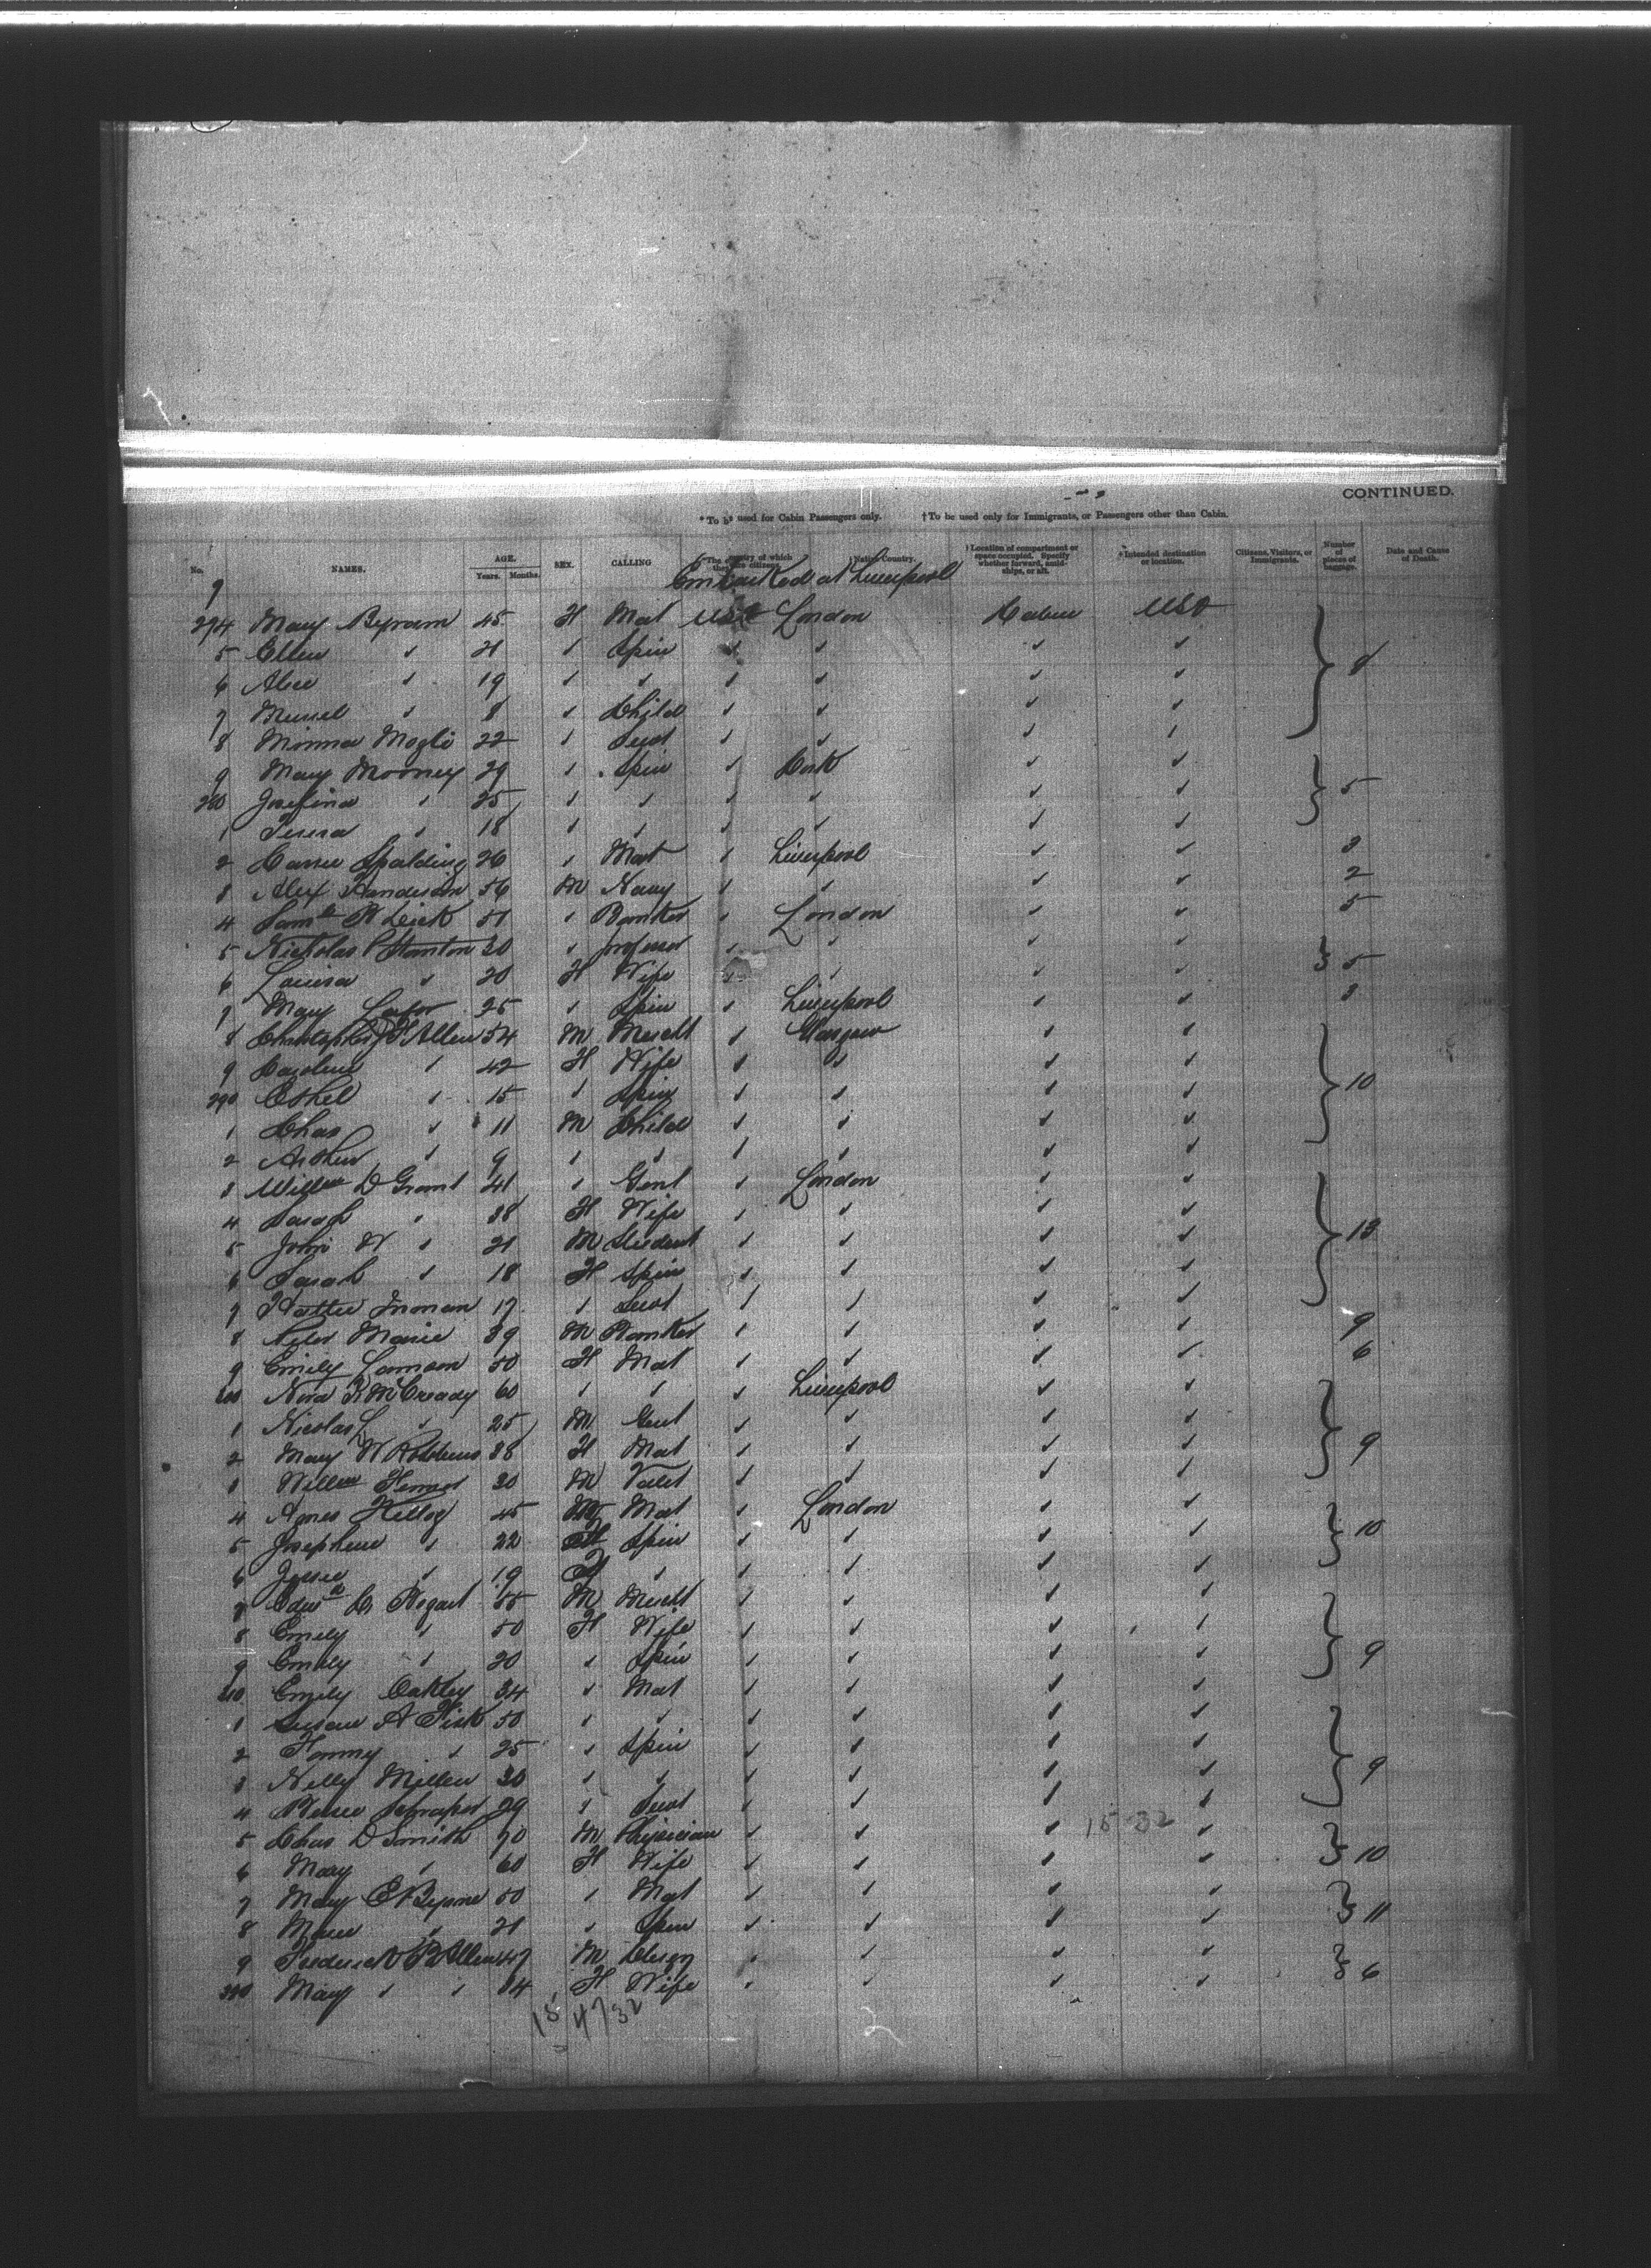 CONTINUED.
* To be used for Cabin Passengers only. † To be used only for Immigrants, or Passengers other than Cabin.
No. NAMES. AGE. Years. Months. SEX. CALLING *The country of which they are citizens. †Native Country. †Location of compartment or space occupied. Specify whether forward, amidships, or aft. *Intended destination or location. Citizens, Visitors, or Immigrants. Number of pieces of baggage. Date and Cause of Death.
Embarked at Liverpool
274 Mary Byram 45 F Mat USA London Cabin USA
5 Ellen ✓ 21 ✓ Spin ✓ ✓ ✓ ✓
6 Alice ✓ 19 ✓ ✓ ✓ ✓ ✓ ✓ 8
7 Muriel ✓ 8 ✓ Child ✓ ✓ ✓ ✓
8 Minna Mogli 22 ✓ Servt ✓ ✓ ✓ ✓
9 Mary Mooney 29 ✓ Spin ✓ Cork ✓ ✓
280 Josefina ✓ 25 ✓ ✓ ✓ ✓ ✓ ✓ 5
1 Teresa ✓ 18 ✓ ✓ ✓ ✓ ✓ ✓
2 Carrie Spalding 26 ✓ Mat ✓ Liverpool ✓ ✓ 3
3 Alex Henderson 56 M Navy ✓ ✓ ✓ ✓ 2
4 Saml 51 ✓ Banker ✓ London ✓ ✓ 5
5 Nicholas Stanton 30 ✓ Professor ✓ ✓ ✓ ✓
6 Louisa ✓ 20 F Wife ✓ ✓ ✓ ✓ 5
7 Mary 25 ✓ Spin ✓ Liverpool ✓ ✓ 3
8 Christopher Allen 54 M Mercht ✓ Glasgow ✓ ✓
9 Caroline ✓ 42 F Wife ✓ ✓ ✓ ✓
290 Ethel ✓ 15 ✓ Spin ✓ ✓ ✓ ✓ 10
1 Chas ✓ 11 M Child ✓ ✓ ✓ ✓
2 Arthur ✓ 9 ✓ ✓ ✓ ✓ ✓ ✓
3 Willm D Grant 41 ✓ Gent ✓ London ✓ ✓
4 Sarah ✓ 38 F Wife ✓ ✓ ✓ ✓
5 John W ✓ 21 M Student ✓ ✓ ✓ ✓ 13
6 Sarah ✓ 18 F Spin ✓ ✓ ✓ ✓
7 Hattie Inman 17 ✓ Servt ✓ ✓ ✓ ✓
8 Peter Marie 39 M Banker ✓ ✓ ✓ ✓ 9
9 Emily Lamson 50 F Mat ✓ ✓ ✓ ✓ 6
300 McCready 60 ✓ ✓ ✓ Liverpool ✓ ✓
1 Nicolas L ✓ 25 M Gent ✓ ✓ ✓ ✓
2 Mary W Robbins 38 F Mat ✓ ✓ ✓ ✓ 9
3 Willm 30 M Valet ✓ ✓ ✓ ✓
4 Agnes Kellog 45 Mat ✓ London ✓ ✓
5 Josephine ✓ 22 F Spin ✓ ✓ ✓ ✓ 10
6 Jessie ✓ 19 F ✓ ✓ ✓ ✓ ✓
7 Edwd C 55 M Mercht ✓ ✓ ✓ ✓
8 Emily ✓ 50 F Wife ✓ ✓ ✓ ✓
9 Emily ✓ 20 ✓ Spin ✓ ✓ ✓ ✓ 9
310 Emily Oakley 34 ✓ Mat ✓ ✓ ✓ ✓
1 Susan A Fisk 50 ✓ ✓ ✓ ✓ ✓ ✓
2 Fanny ✓ 25 ✓ Spin ✓ ✓ ✓ ✓
3 Nelly Miller 30 ✓ ✓ ✓ ✓ ✓ ✓ 9
4 29 ✓ Servt ✓ ✓ ✓ ✓
5 Chas D Smith 70 M Physician ✓ ✓ ✓ 15-32 ✓
6 Mary ✓ 60 F Wife ✓ ✓ ✓ ✓ 10
7 Mary E Byrne 50 ✓ Mat ✓ ✓ ✓ ✓
8 ✓ 21 ✓ Spin ✓ ✓ ✓ ✓ 11
9 Frederick B Allen 47 M Clergy ✓ ✓ ✓ ✓
320 Mary ✓ ✓ 34 F Wife ✓ ✓ ✓ ✓ 6
15 4732